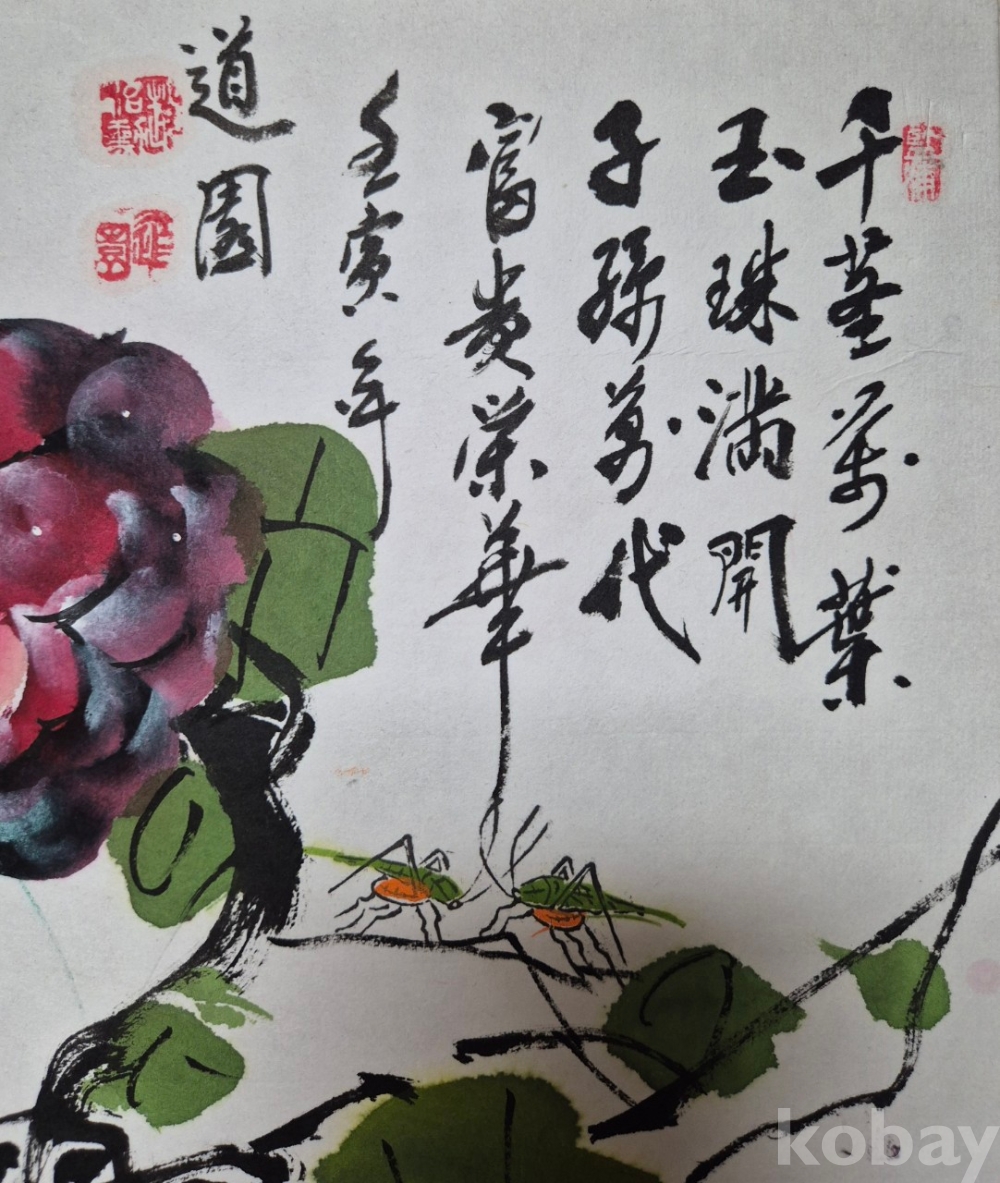 千莖萬葉
玉珠滿開
子孫萬代
富貴榮華
壬寅年
道園
kobay